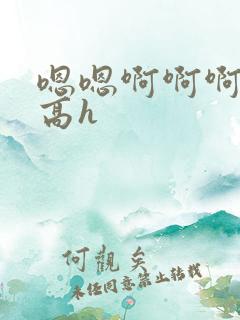 嗯嗯啊啊啊
高h
何觀矣
未经同意禁止转载